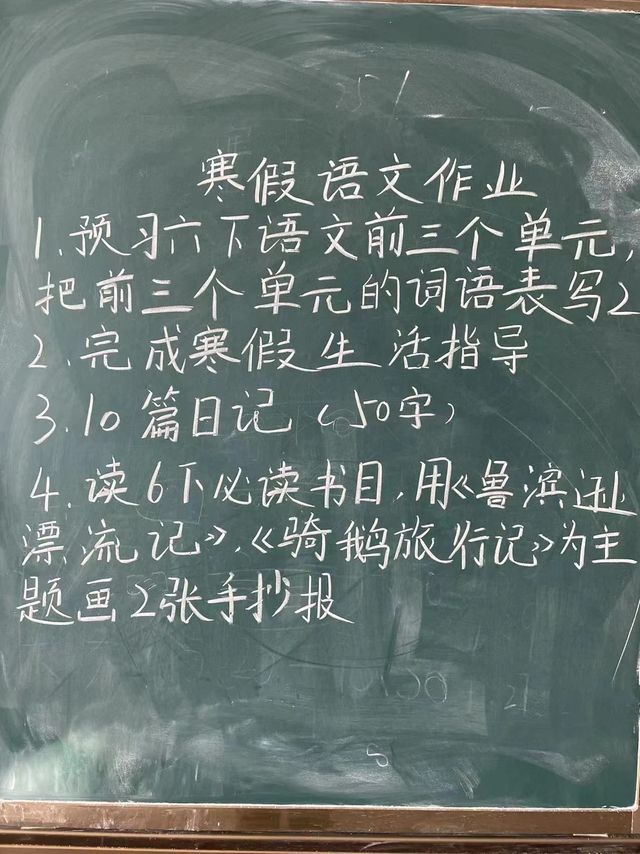 寒假语文作业
1.预习六下语文前三个单元,
把前三个单元的词语表写2
2.完成寒假生活指导
3.10篇日记(50字)
4.读6下必读书目,用《鲁滨逊
漂流记》、《骑鹅旅行记》为主
题画2张手抄报